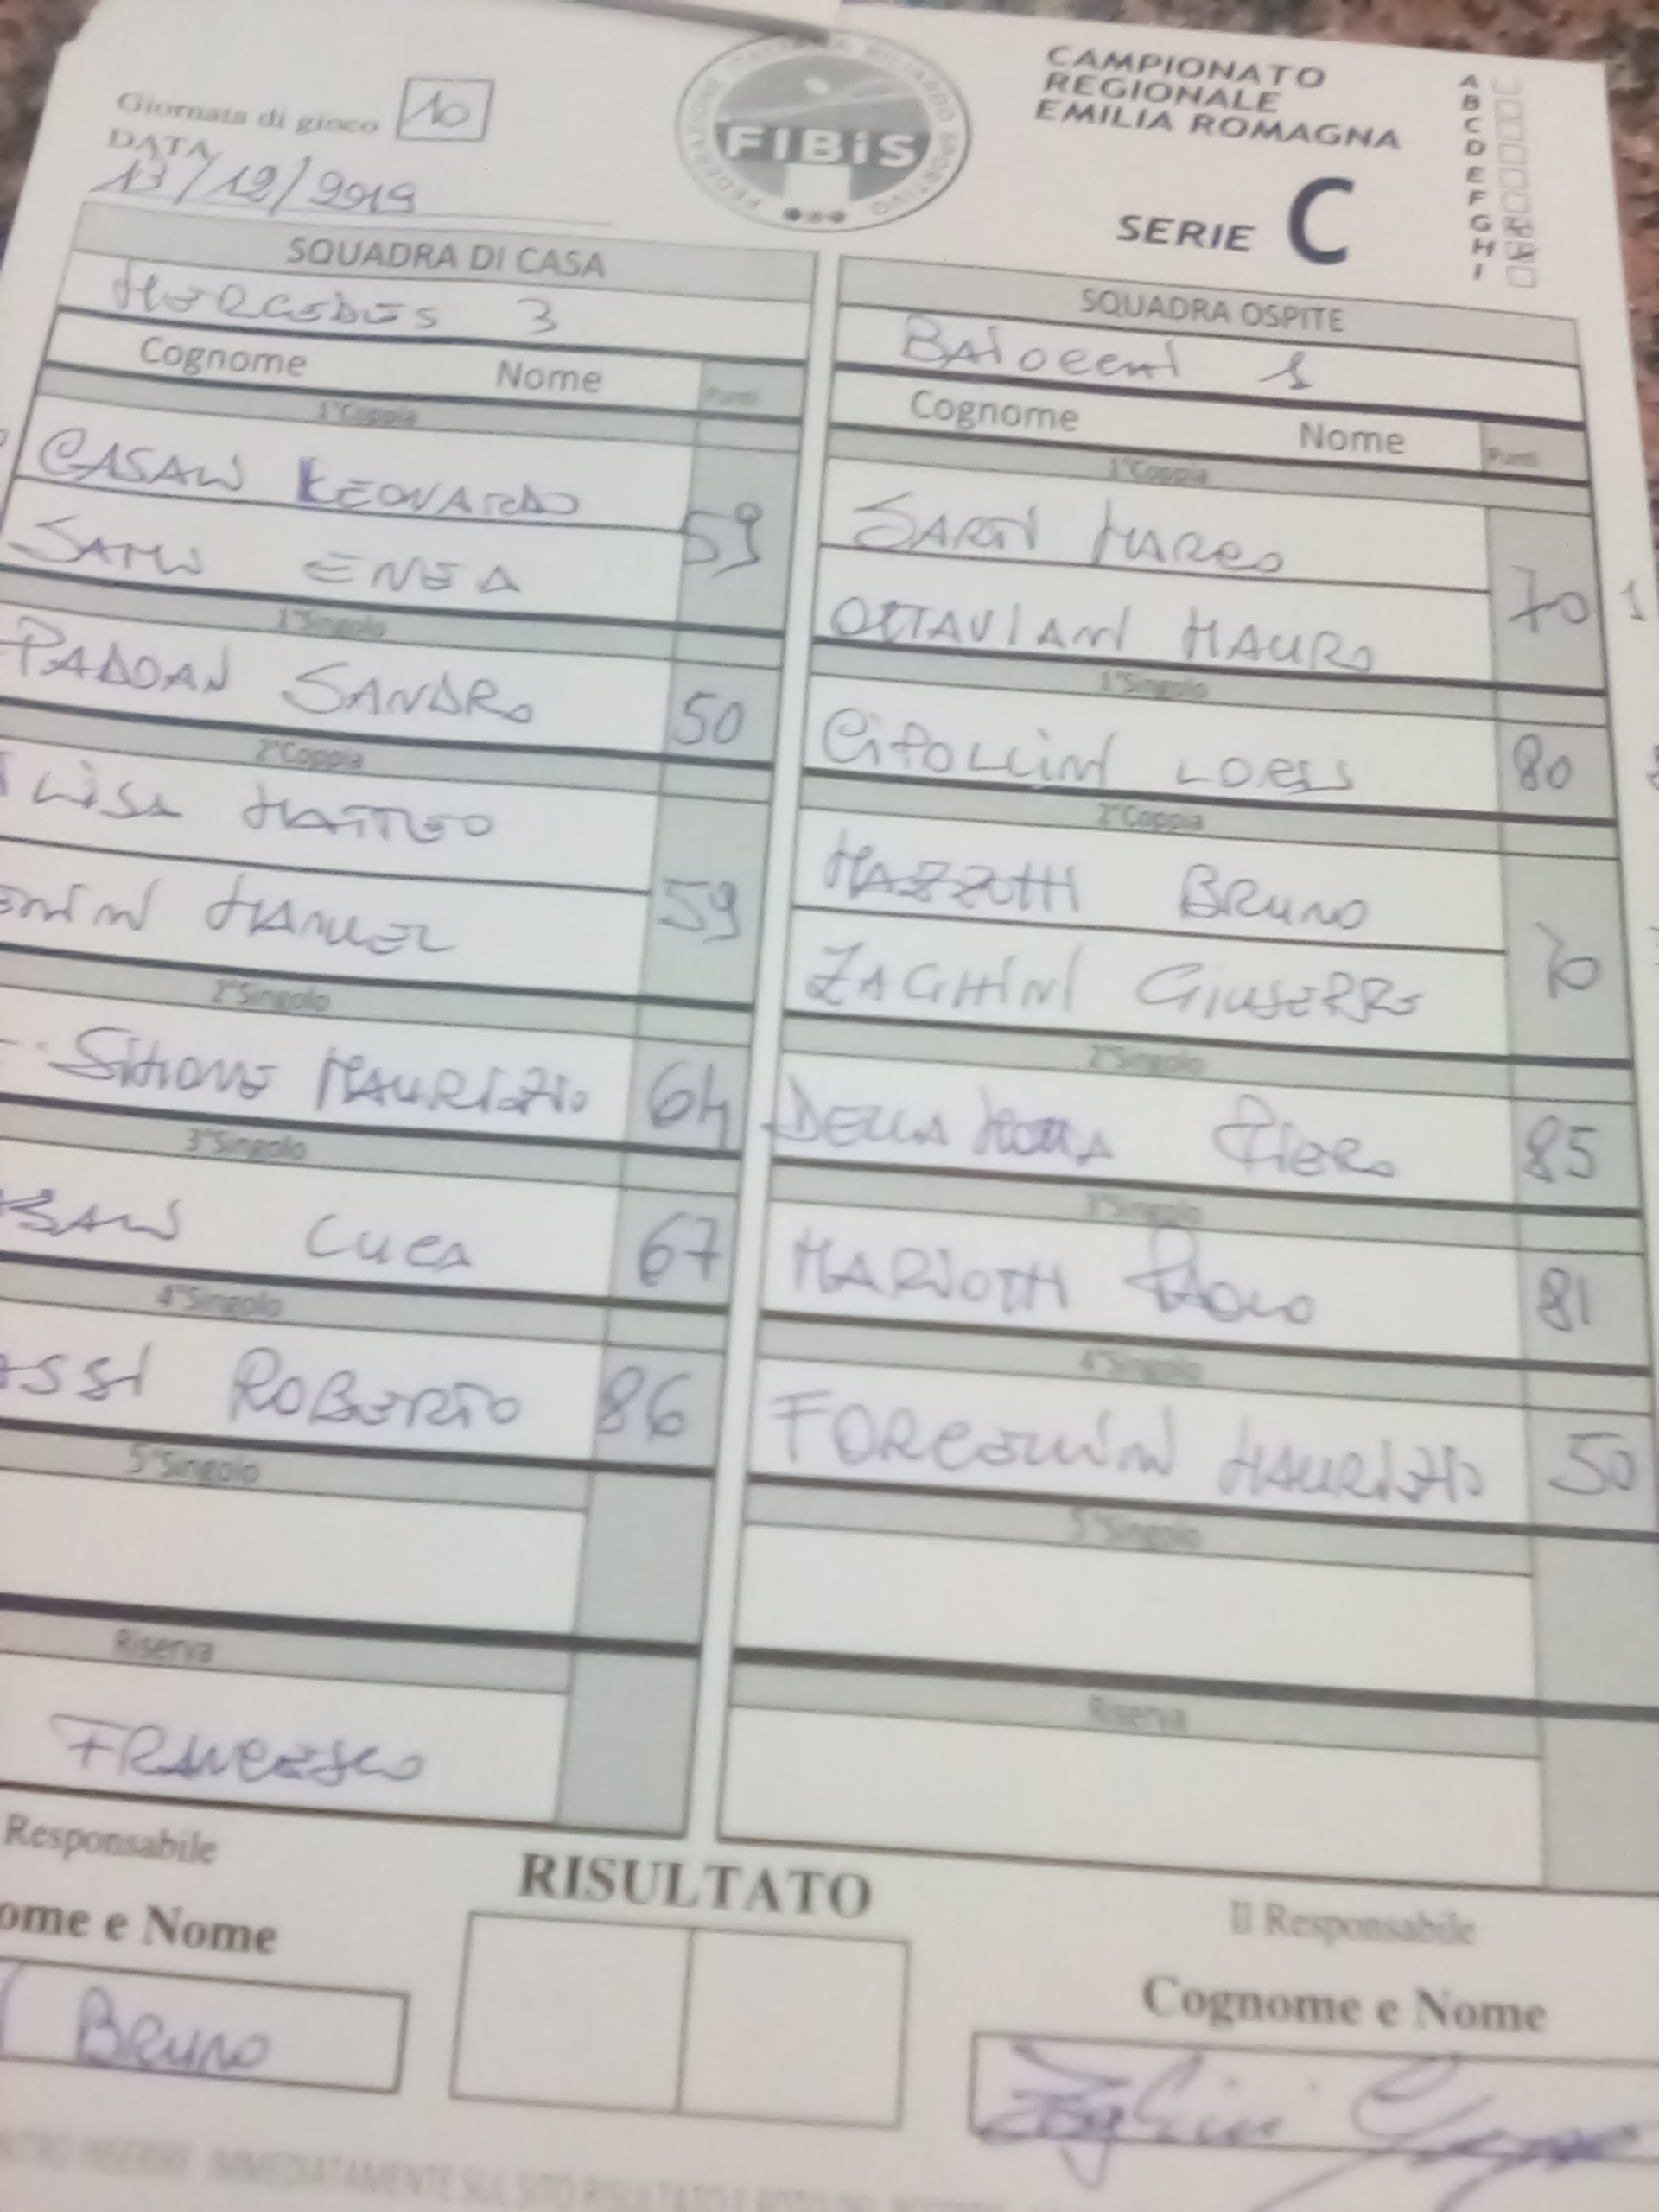 Giornata di gioco 10
DATA
13/12/2019
FEDERAZIONE ITALIANA BILIARDO SPORTIVO
FIBiS
CAMPIONATO
REGIONALE
EMILIA ROMAGNA
SERIE C
A
B
C
D
E
F
G
H
I
SQUADRA DI CASA
MERCEDES 3
Cognome Nome Punti
1°Coppia
CASALI LEONARDO
SAMI ENEA
59
1°Singolo
PADOAN SANDRO 50
2°Coppia
LISA MATTEO
MANUEL
59
2°Singolo
SIMONE MAURIZIO 64
3°Singolo
SALI LUCA 67
4°Singolo
ASSI ROBERTO 86
5°Singolo
Riserva
FRANCESCO
SQUADRA OSPITE
BAIOCCHI 1
Cognome Nome Punti
1°Coppia
SARTI MARCO
OTTAVIANI MAURO
70 1
1°Singolo
CIPOLLINI LORIS 80
2°Coppia
MAZZOTTI BRUNO
ZAGHINI GIUSEPPE
70
2°Singolo
DELLA MOTTA PIERO 85
3°Singolo
MARIOTTI PAOLO 81
4°Singolo
FORCELLINI MAURIZIO 50
5°Singolo
Riserva
Responsabile
ome e Nome
BRUNO
RISULTATO
Il Responsabile
Cognome e Nome
INSERIRE IMMEDIATAMENTE SUL SITO RISULTATO E FOTO DEL